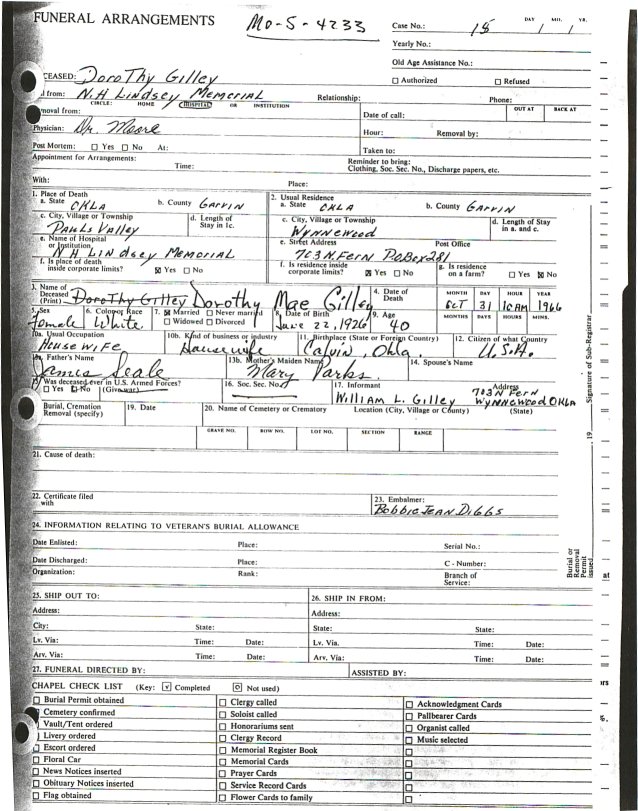 FUNERAL ARRANGEMENTS MO-S-4233 Case No.: 18 / / DAY MO. YR.
Yearly No.:
Old Age Assistance No.:
CEASED: DoroThy Gilley ☐ Authorized ☐ Refused
from: N.H Lindsey Memorial Relationship: Phone:
CIRCLE: HOME HOSPITAL OR INSTITUTION
moval from: Date of call: OUT AT BACK AT
Physician: Dr. Moore Hour: Removal by:
Post Mortem: ☐ Yes ☐ No At: Taken to:
Appointment for Arrangements: Time: Reminder to bring:
Clothing, Soc. Sec. No., Discharge papers, etc.
With: Place:
1. Place of Death 2. Usual Residence
a. State OKLA b. County GARVIN a. State OKLA b. County GARVIN
c. City, Village or Township d. Length of Stay in 1c. c. City, Village or Township d. Length of Stay in a. and c.
PAULS VAlley WYNNEWOOD
e. Name of Hospital or Institution e. Street Address Post Office
N H LINDSEY MEMORIAL 703 N. FERN P.O Box 281
f. Is place of death inside corporate limits? ☒ Yes ☐ No f. Is residence inside corporate limits? ☒ Yes ☐ No g. Is residence on a farm? ☐ Yes ☒ No
3. Name of Deceased (Print) DoroThy GilleY Dorothy Mae Gilley 4. Date of Death MONTH DAY HOUR YEAR
OcT 31 10AM 1966
5. Sex 6. Color or Race 7. ☒ Married ☐ Never married ☐ Widowed ☐ Divorced 8. Date of Birth 9. Age MONTHS DAYS HOURS MINS.
Female White June 22, 1926 40
10a. Usual Occupation 10b. Kind of business or industry 11. Birthplace (State or Foreign Country) 12. Citizen of what Country
HOUSEWIFE Housewife Calvin, Okla. U.S.A.
13a. Father's Name 13b. Mother's Maiden Name 14. Spouse's Name
James Seale Mary Parks
15. Was deceased ever in U.S. Armed Forces? 16. Soc. Sec. No. 17. Informant Address
☐ Yes ☒ No (Give war) William L. Gilley 703 N Fern Wynnewood OKLA
Burial, Cremation Removal (specify) 19. Date 20. Name of Cemetery or Crematory Location (City, Village or County) (State)
GRAVE NO. ROW NO. LOT NO. SECTION RANGE
21. Cause of death:
22. Certificate filed with 23. Embalmer:
Bobbie Jean Diggs
24. INFORMATION RELATING TO VETERAN'S BURIAL ALLOWANCE
Date Enlisted: Place: Serial No.:
Date Discharged: Place: C - Number:
Organization: Rank: Branch of Service:
25. SHIP OUT TO: 26. SHIP IN FROM:
Address: Address:
City: State: State: State:
Lv. Via: Time: Date: Lv. Via. Time: Date:
Arv. Via: Time: Date: Arv. Via: Time: Date:
27. FUNERAL DIRECTED BY: ASSISTED BY:
CHAPEL CHECK LIST (Key: ☑ Completed ☐ Not used)
☐ Burial Permit obtained ☐ Clergy called ☐ Acknowledgment Cards
☐ Cemetery confirmed ☐ Soloist called ☐ Pallbearer Cards
☐ Vault/Tent ordered ☐ Honorariums sent ☐ Organist called
☐ Livery ordered ☐ Clergy Record ☐ Music selected
☐ Escort ordered ☐ Memorial Register Book ☐
☐ Floral Car ☐ Memorial Cards ☐
☐ News Notices inserted ☐ Prayer Cards ☐
☐ Obituary Notices inserted ☐ Service Record Cards ☐
☐ Flag obtained ☐ Flower Cards to family ☐
Signature of Sub-Registrar
19
Burial or Removal Permit issued
at